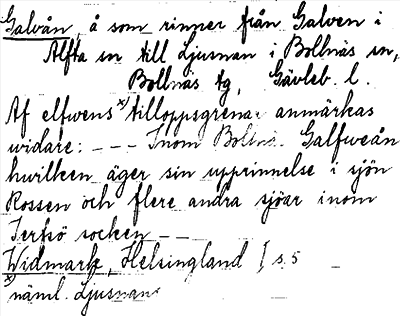 Galvån, å som rinner från Galven i
Alfta sn till Ljusnan i Bollnäs sn,
Bollnäs tg, Gävleb. l.
Af elfwens x) tilloppsgrenar anmärkas
widare: - - - Inom Bollnäs Galfweån
hwilken äger sin upprinnelse i sjön
Rossen och flere andra sjöar inom
Jerfsö socken - -
Widmark, Helsingland I, s. 5
x) näml. Ljusnans